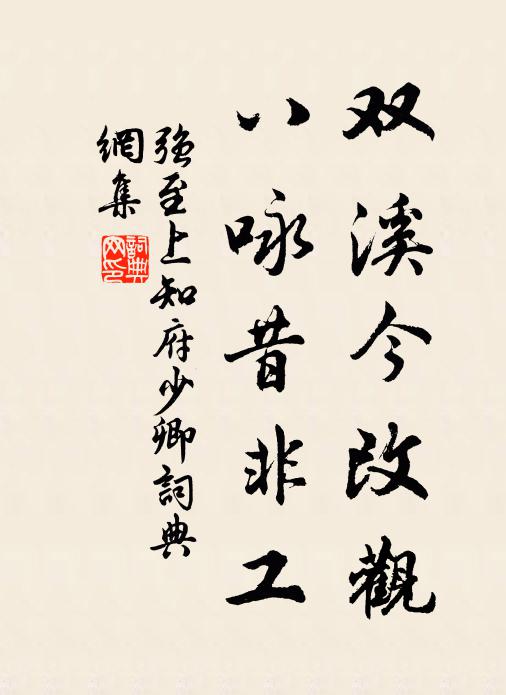 双溪今改觀
八咏昔非工
强至上知府少卿詞典
網集
詞典
网印